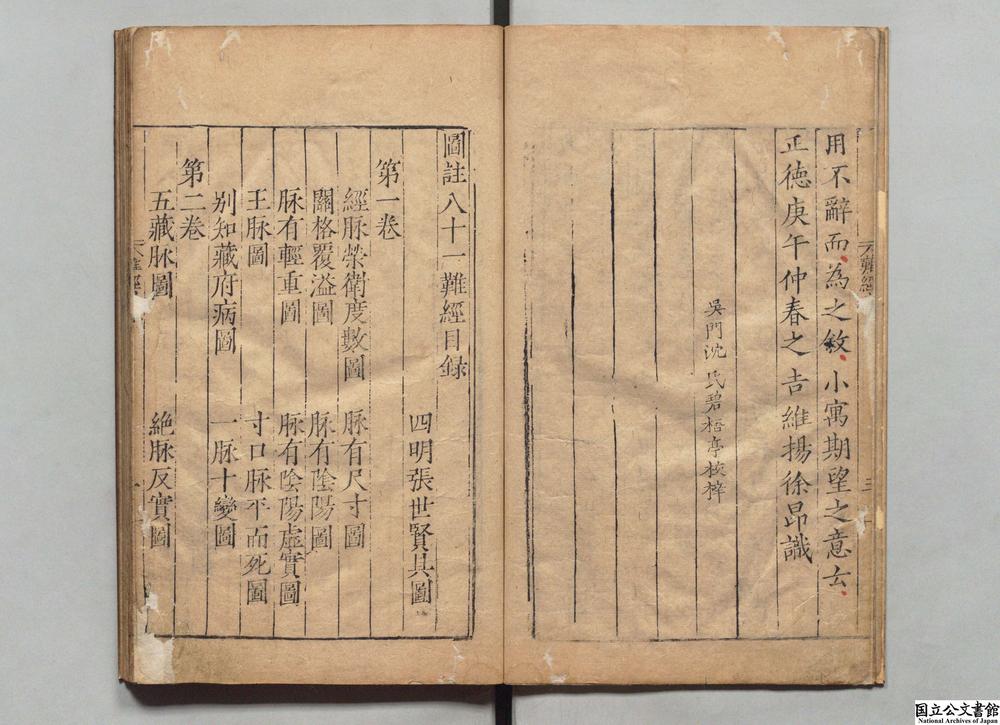 用不辭而為之敘小寓期望之意云
正徳庚午仲春之吉維揚徐昂識
吳門沈氏碧梧亭校梓
圖註八十一難經目録
四明張世賢具圖
第一卷
經脉榮衛度數圖 脉有尺寸圖
關格覆溢圖 脉有陰陽圖
脉有輕重圖 脉有陰陽虛實圖
王脉圖 寸口脉平而死圖
别知藏府病圖 一脉十變圖
第二卷
五藏脉圖 絶脉反實圖
国立公文書館
National Archives of Japan